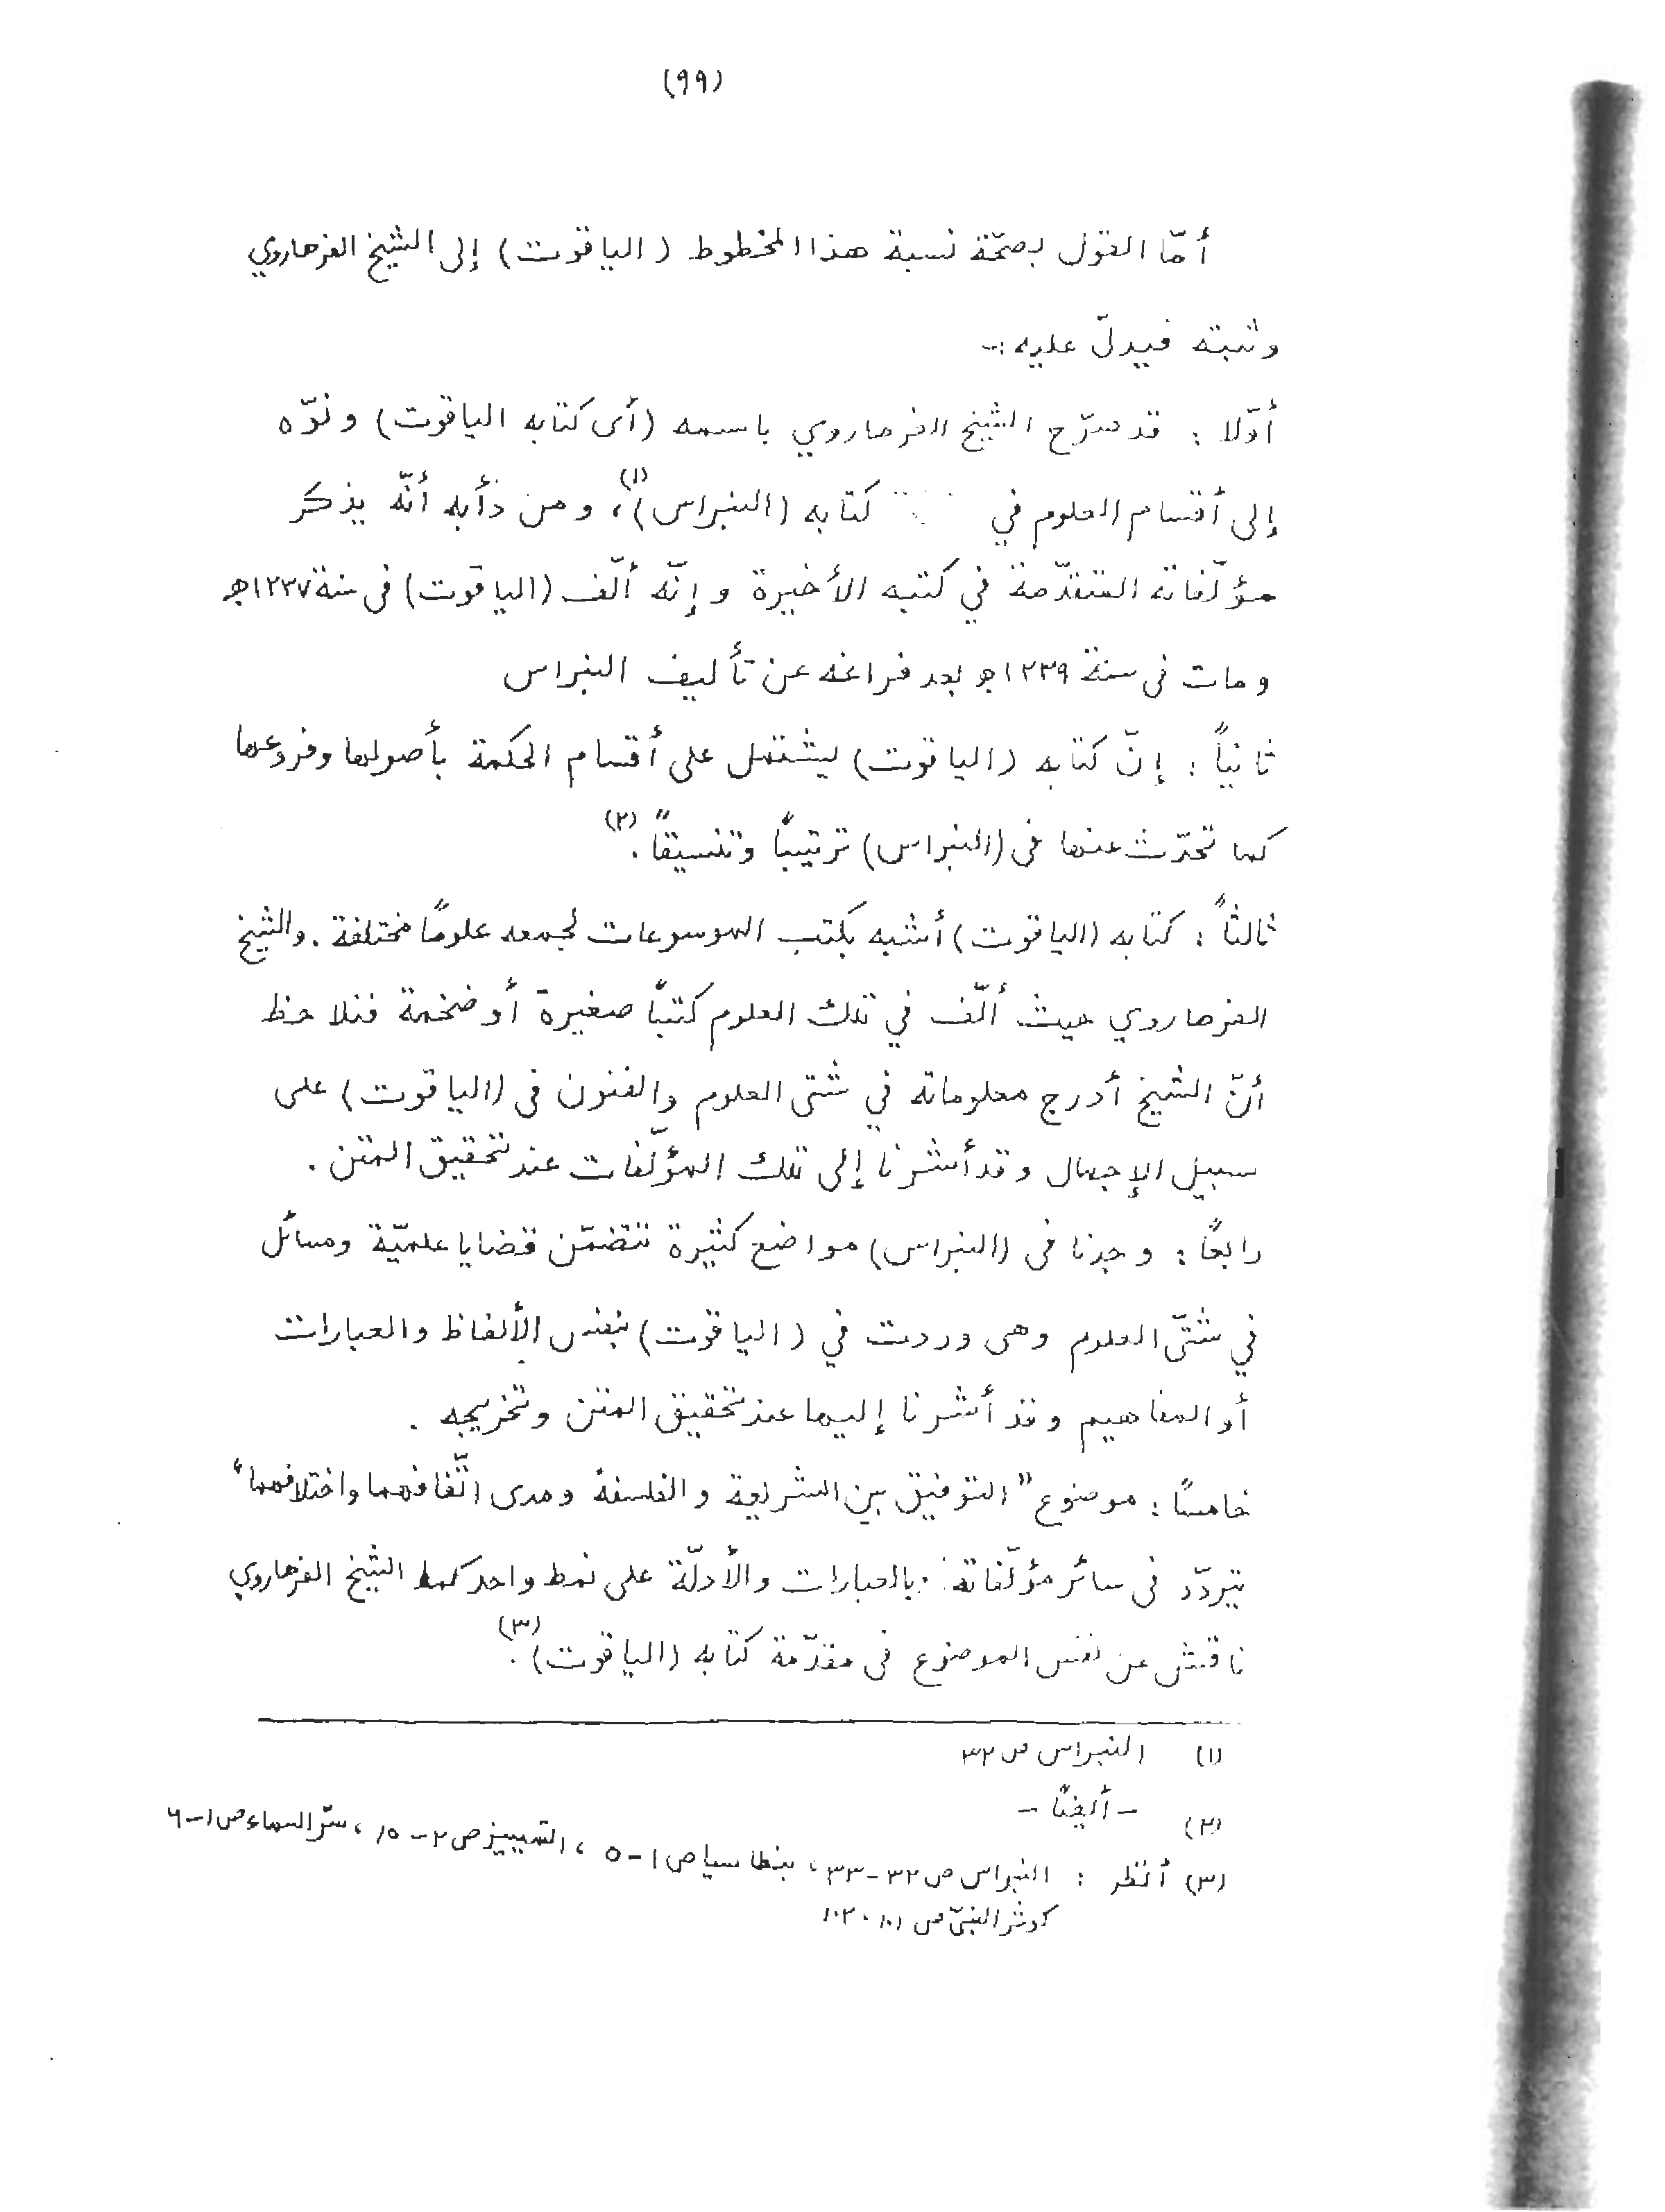 (٩٩)
أمّا القول بصحّة نسبة هذا المخطوط (الياقوت) إلى الشيخ الفرهاروي
وثبته فيدلّ عليه :-
أوّلا : قد صرّح الشيخ الفرهاروي باسمه (أى كتابه الياقوت) ونوّه
إلى أقسام العلوم في كتابه (النبراس)(١)، ومن دأبه أنّه يذكر
مؤلّفاته المتقدّمة في كتبه الأخيرة وإنّه ألّف (الياقوت) فى سنة ١٢٣٧هـ
ومات فى سنة ١٢٣٩هـ بعد فراغه عن تأليف النبراس
ثانياً : إنّ كتابه (الياقوت) يشتمل على أقسام الحكمة بأصولها وفروعها
كما تحدّث عنها فى (النبراس) ترتيبًا وتنسيقاً .(٢)
ثالثاً : كتابه (الياقوت) أشبه بكتب الموسوعات لجمعه علومًا مختلفة . والشيخ
الفرهاروي حيث ألّف في تلك العلوم كتبًا صغيرة أو ضخمة فنلاحظ
أنّ الشيخ أدرج معلوماته في شتى العلوم والفنون فى (الياقوت) على
سبيل الإجمال وقد أشرنا إلى تلك المؤلّفات عند تحقيق المتن .
رابعًا : وجدنا فى (النبراس) مواضع كثيرة تتضمّن قضايا علميّة ومسائل
في شتّى العلوم وهى وردت في (الياقوت) بنفس الألفاظ والعبارات
أو المفاهيم وقد أشرنا إليها عند تحقيق المتن وتخريجه .
خامسًا : موضوع "التوفيق بين الشريعة والفلسفة ومدى اتّفاقهما واختلافهما"
يتردّد فى سائر مؤلّفاته بالعبارات والأدلّة على نمط واحد كما الشيخ الفرهاروي
ناقش عن نفس الموضوع فى مقدّمة كتابه (الياقوت)(٣) .
(١) النبراس ص ٣٢
(٢) - أيضًا -
(٣) أنظر : النبراس ص ٣٢-٣٣، بنطاسيا ص ١-٥ ، التمييز ص ٢-١٥ ، سرّ السماء ص ١-٦
كوثر النبىّ ص ١٠١، ١٠٢